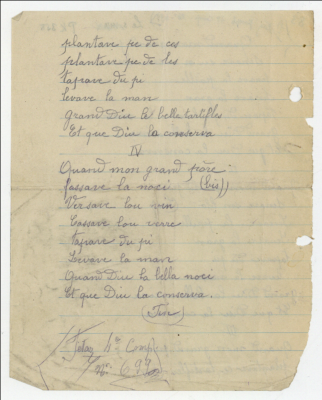 plantave pe de ces
plantave pe de les
tapave du pi
levave la man
grand Diu le bella tartifles
Et que Diu la conserva
IV
Quand mon grand frère
fassave la noci (bis)
Versave lou vin
Cassave lou verre
tapave du pi
Levave la man
Quand Diu la bella noci
Et que Diu la conserva.
(Fin)
4e Comp
N°